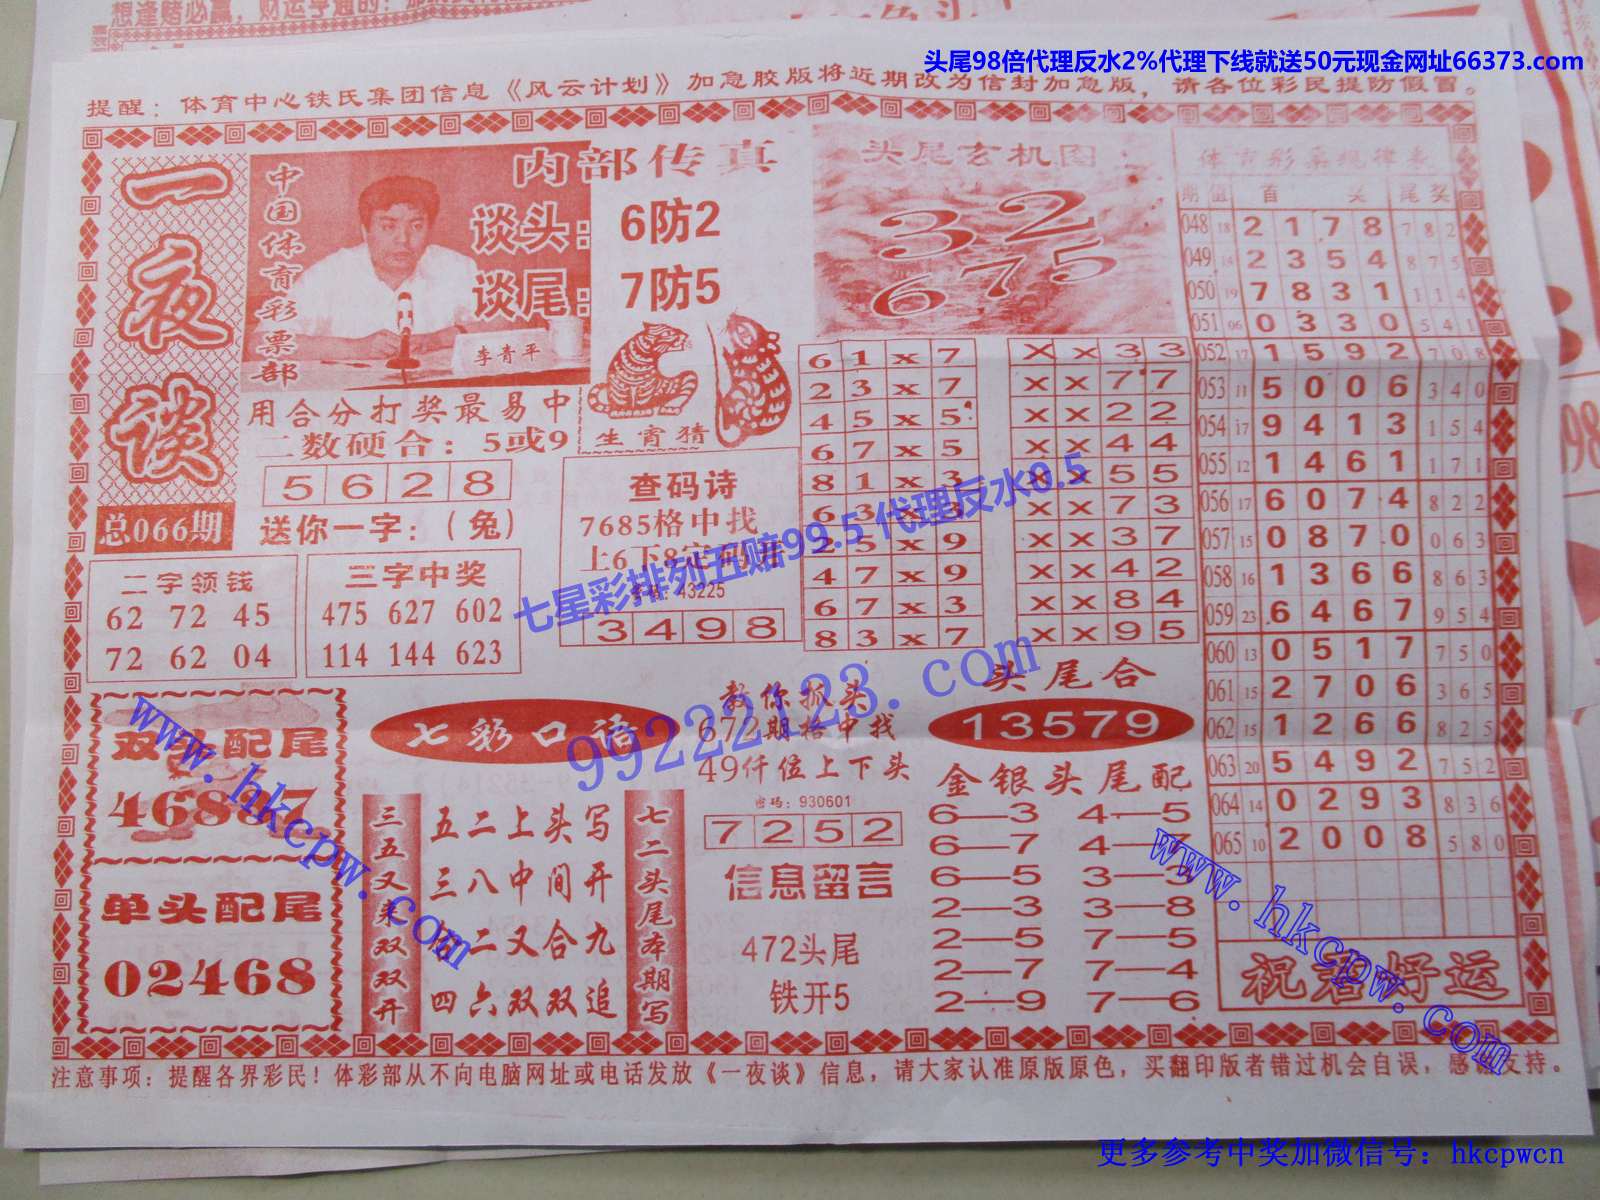 想逢赌必赢，财运亨通的！
头尾98倍代理反水2%代理下线就送50元现金网址66373.com
提醒：体育中心铁氏集团信息《风云计划》加急胶版将近期改为信封加急版，请各位彩民提防假冒。
一夜谈
总066期
中国体育彩票部
李青平
内部传真
谈头：6防2
谈尾：7防5
生肖猜
用合分打奖最易中
二数硬合：5或9
5 6 2 8
送你一字：（兔）
二字领钱
62 72 45
72 62 04
三字中奖
475 627 602
114 144 623
查码诗
7685格中找
上6下8定码
43225
3 4 9 8
头尾玄机图：
32
675
6 1 x 7
2 3 x 7
4 5 x 5
6 7 x 5
8 1 x 3
6 3 x 3
2 5 x 9
4 7 x 9
6 7 x 3
8 3 x 7
X X 3 3
X X 7 7
X X 2 2
X X 4 4
X X 5 5
X X 7 3
X X 3 7
X X 4 2
X X 8 4
X X 9 5
体育彩票规律表
期 值 百 头 尾 奖
048 18 2 1 7 8 7 8 2
049 14 2 3 5 4 8 7 5
050 19 7 8 3 1 1 1 4
051 06 0 3 3 0 5 4 1
052 17 1 5 9 2 7 0 8
053 11 5 0 0 6 3 4 0
054 17 9 4 1 3 1 5 4
055 12 1 4 6 1 1 7 1
056 17 6 0 7 4 8 2 2
057 15 0 8 7 0 0 6 3
058 16 1 3 6 6 8 6 3
059 23 6 4 6 7 9 5 4
060 13 0 5 1 7 7 5 0
061 15 2 7 0 6 3 6 5
062 15 1 2 6 6 8 1 1
063 20 5 4 9 2 7 5 2
064 14 0 2 9 3 8 3 6
065 10 2 0 0 8 5 8 0
祝君好运
双头配尾
46887
单头配尾
02468
七彩口语
三五又来双双开
五二上头写
三八中间开
有二又合九
四六双双追
七二头尾本期写
教你抓头
672期格中找
49仟位上下头
密码：930601
7 2 5 2
信息留言
472头尾
铁开5
头尾合
13579
金银头尾配
6—3 4—5
6—7 4—7
6—5 3—3
2—3 3—8
2—5 7—5
2—7 7—4
2—9 7—6
注意事项：提醒各界彩民！体彩部从不向电脑网址或电话发放《一夜谈》信息，请大家认准原版原色，买翻印版者错过机会自误，感谢支持。
七星彩排列五赔99.5代理反水0.5
99222123.com
www.hkcpw.com
www.hkcpw.com
更多参考中奖加微信号：hkcpwcn